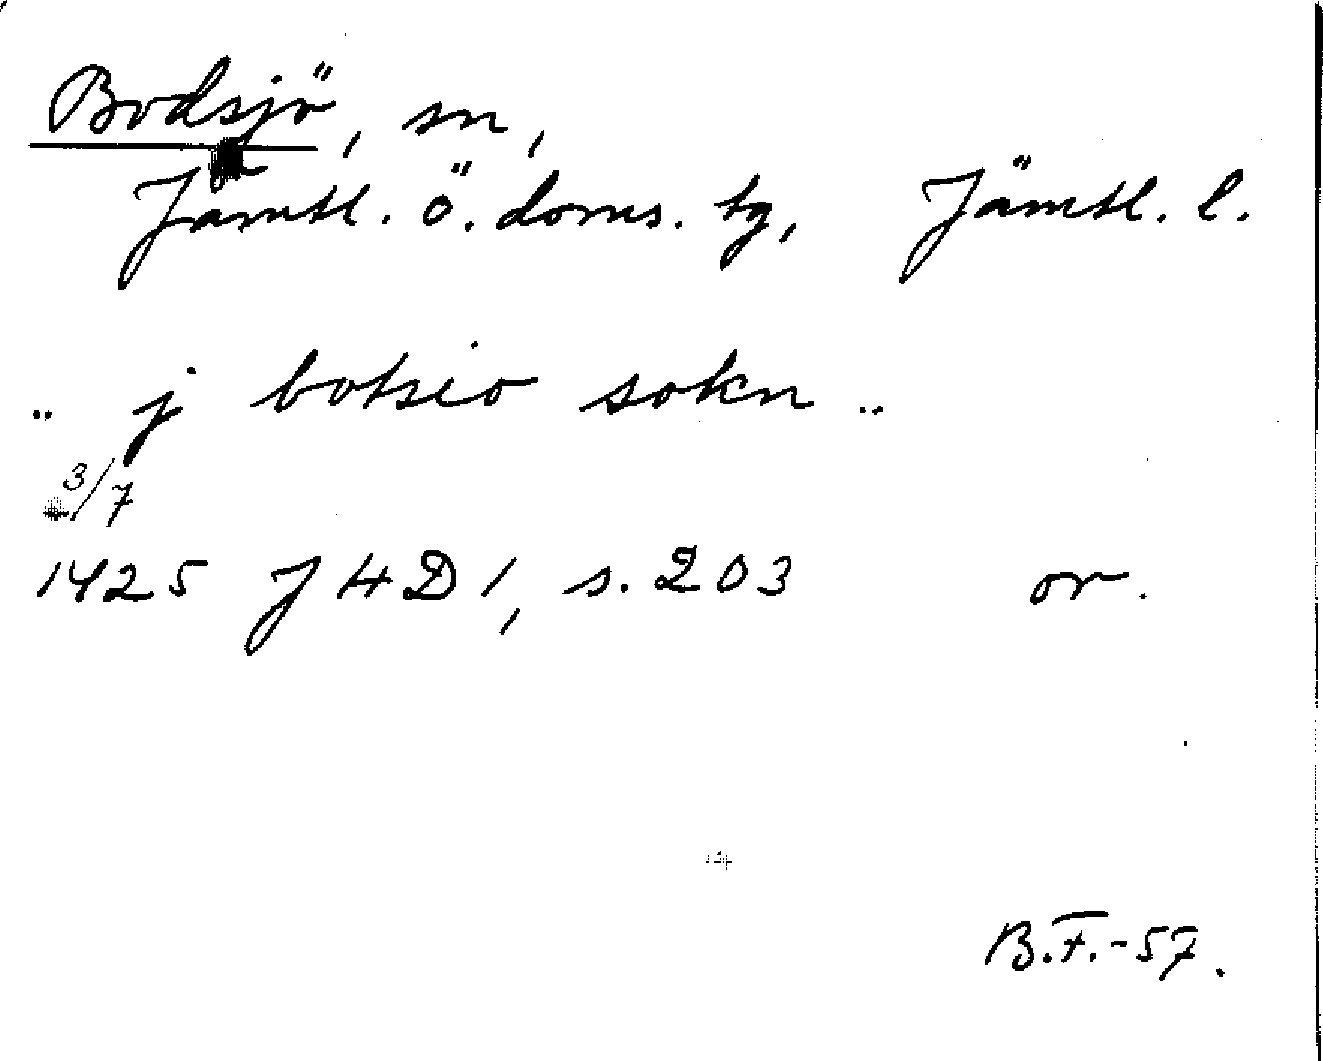 Bodsjö, sn,
Jämtl. ö. doms. tg, Jämtl. l.
„ j botsio sokn „
3/7
1425 J H D 1, s. 203 or.
B.F.-57.